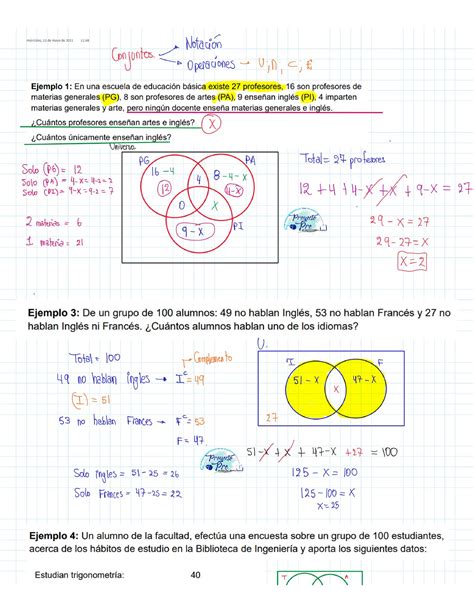 Conjuntos → Notación
→ Operaciones → U, ∩, C, E
Ejemplo 1: En una escuela de educación básica existe 27 profesores, 16 son profesores de
materias generales (PG), 8 son profesores de artes (PA), 9 enseñan inglés (PI), 4 imparten
materias generales y arte, pero ningún docente enseña materias generales e inglés.
¿Cuántos profesores enseñan artes e inglés? X
¿Cuántos únicamente enseñan inglés?
Universo
Total = 27 profesores
PG PA
16 - 4 4 8 - 4 - x
12 4-x
0 x
9 - x PI
Solo (PG) = 12
Solo (PA) = 4-x = 4-2 = 2
Solo (PI) = 9-x = 9-2 = 7
2 materias = 6
1 materia = 21
12 + 4 + 4 - x + x + 9 - x = 27
Proyecto
Pre
29 - x = 27
29 - 27 = x
x = 2
Ejemplo 3: De un grupo de 100 alumnos: 49 no hablan Inglés, 53 no hablan Francés y 27 no
hablan Inglés ni Francés. ¿Cuántos alumnos hablan uno de los idiomas?
U.
Total = 100
Complemento
49 no hablan ingles → Iᶜ = 49
(I) = 51
53 no hablan Frances → Fᶜ = 53
F = 47
I F
51 - x x 47 - x
27
Proyecto
Pre
51 - x + x + 47 - x + 27 = 100
125 - x = 100
125 - 100 = x
x = 25
Solo Ingles = 51 - 25 = 26
Solo Frances = 47 - 25 = 22
Ejemplo 4: Un alumno de la facultad, efectúa una encuesta sobre un grupo de 100 estudiantes,
acerca de los hábitos de estudio en la Biblioteca de Ingeniería y aporta los siguientes datos:
Estudian trigonometría: 40
T A